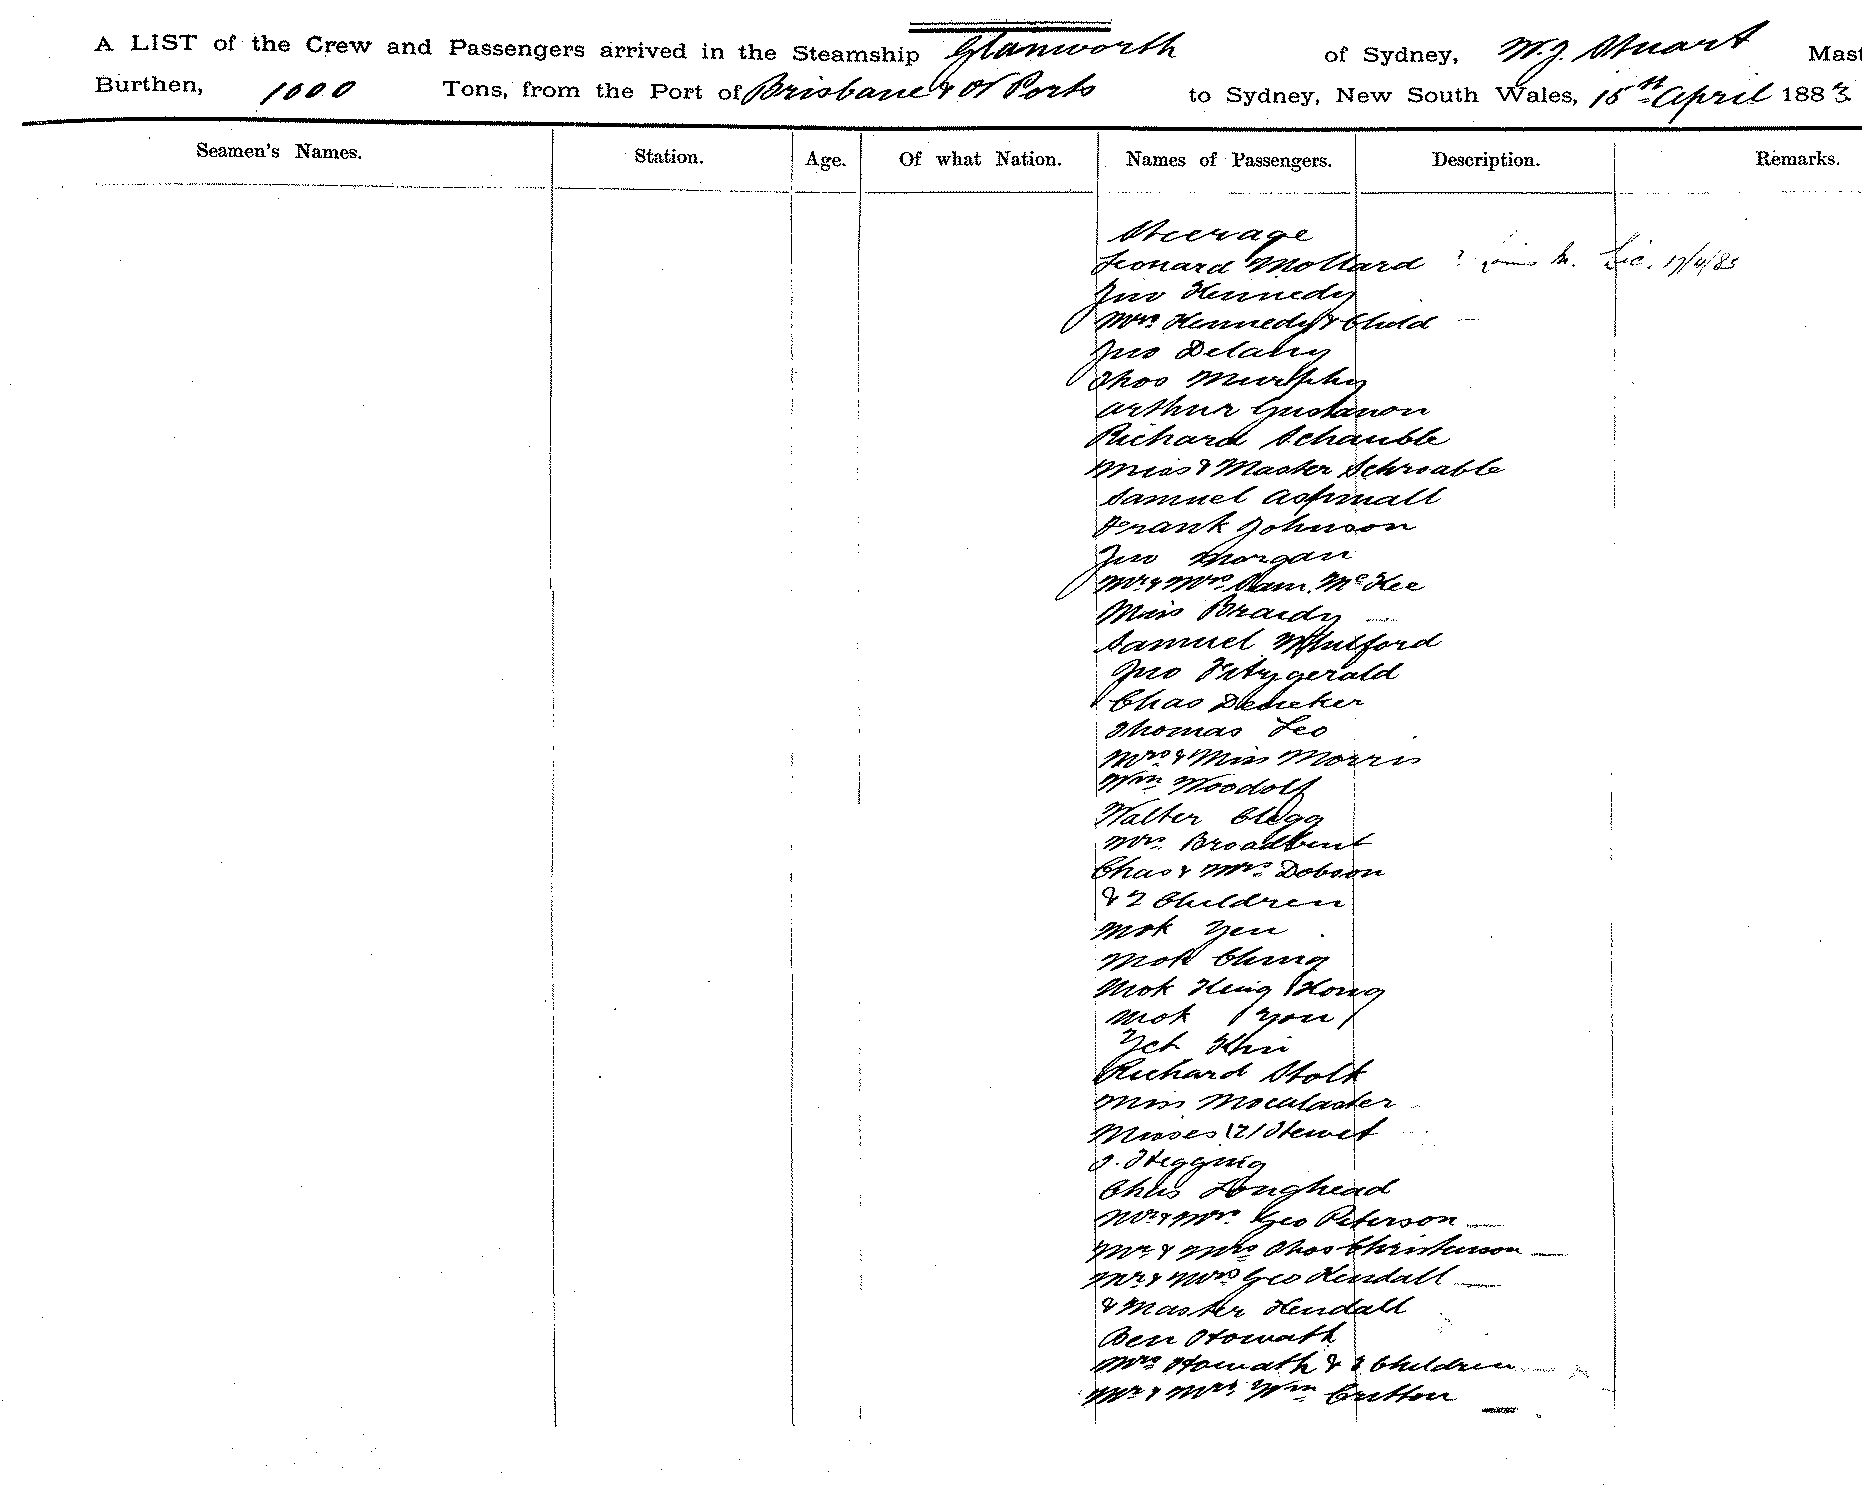 A LIST of the Crew and Passengers arrived in the Steamship Glanworth of Sydney, W.J. Stuart Mast
Burthen, 1000 Tons, from the Port of Brisbane & Ot Ports to Sydney, New South Wales, 15th April 1883
Seamen's Names. Station. Age. Of what Nation. Names of Passengers. Description. Remarks.
Steerage
Leonard Mollard ? Louis M. Lic. 17/4/83
Jno Kennedy
Mrs Kennedy & Child
Jno Delany
Thos Murphy
Arthur Gustavson
Richard Schauble
Miss & Master Schroable
Samuel Aspinall
Frank Johnson
Jno Morgan
Mr & Mrs Sam. McKee
Miss Braidy
Samuel Whitford
Jno Fitzgerald
Chas Deneker
Thomas Leo
Mrs & Miss Morris
Wm Woodolf
Walter Clegg
Mrs Broadbent
Chas & Mrs Dobson
& 2 Children
Mok Yen
Mok Ching
Mok Hing Kong
Mok You
Yet Khi
Richard Stolt
Miss Mocalaster
Misses (2) Hewet
J. Hegging
Chas Longhead
Mr & Mrs Geo Peterson
Mr & Mrs Thos Christenson
Mr & Mrs Geo Kendall
& Master Kendall
Ben Howath
Mrs Howath & 2 Children
Mr & Mrs Wm Britton